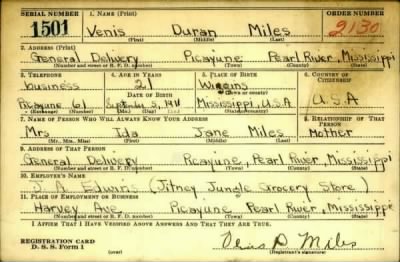 SERIAL NUMBER 1. NAME (Print) ORDER NUMBER
1501 Venis Duran Miles 2130
(First) (Middle) (Last)
2. ADDRESS (Print)
General Delivery Picayune Pearl River, Mississippi
(Number and street or R. F. D. number) (Town) (County) (State)
3. TELEPHONE 4. AGE IN YEARS 5. PLACE OF BIRTH 6. COUNTRY OF CITIZENSHIP
business 21 Wiggins
DATE OF BIRTH (Town or county)
Picayune 61 Mississippi, U.S.A U.S.A
(Exchange) (Number) (Mo.) (Day) (Yr.) (State or country)
7. NAME OF PERSON WHO WILL ALWAYS KNOW YOUR ADDRESS 8. RELATIONSHIP OF THAT PERSON
Mrs Ida Jane Miles Mother
(Mr., Mrs., Miss) (First) (Middle) (Last)
9. ADDRESS OF THAT PERSON
General Delivery Picayune, Pearl River, Mississippi
(Number and street or R. F. D. number) (Town) (County) (State)
10. EMPLOYER'S NAME
J. A. Edwins (Jitney Jungle Grocery Store)
11. PLACE OF EMPLOYMENT OR BUSINESS
Harvey Ave Picayune Pearl River, Mississippi
(Number and street or R. F. D. number) (Town) (County) (State)
I AFFIRM THAT I HAVE VERIFIED ABOVE ANSWERS AND THAT THEY ARE TRUE.
REGISTRATION CARD
D. S. S. Form 1 (over) Venis D. Miles
(Registrant's signature)